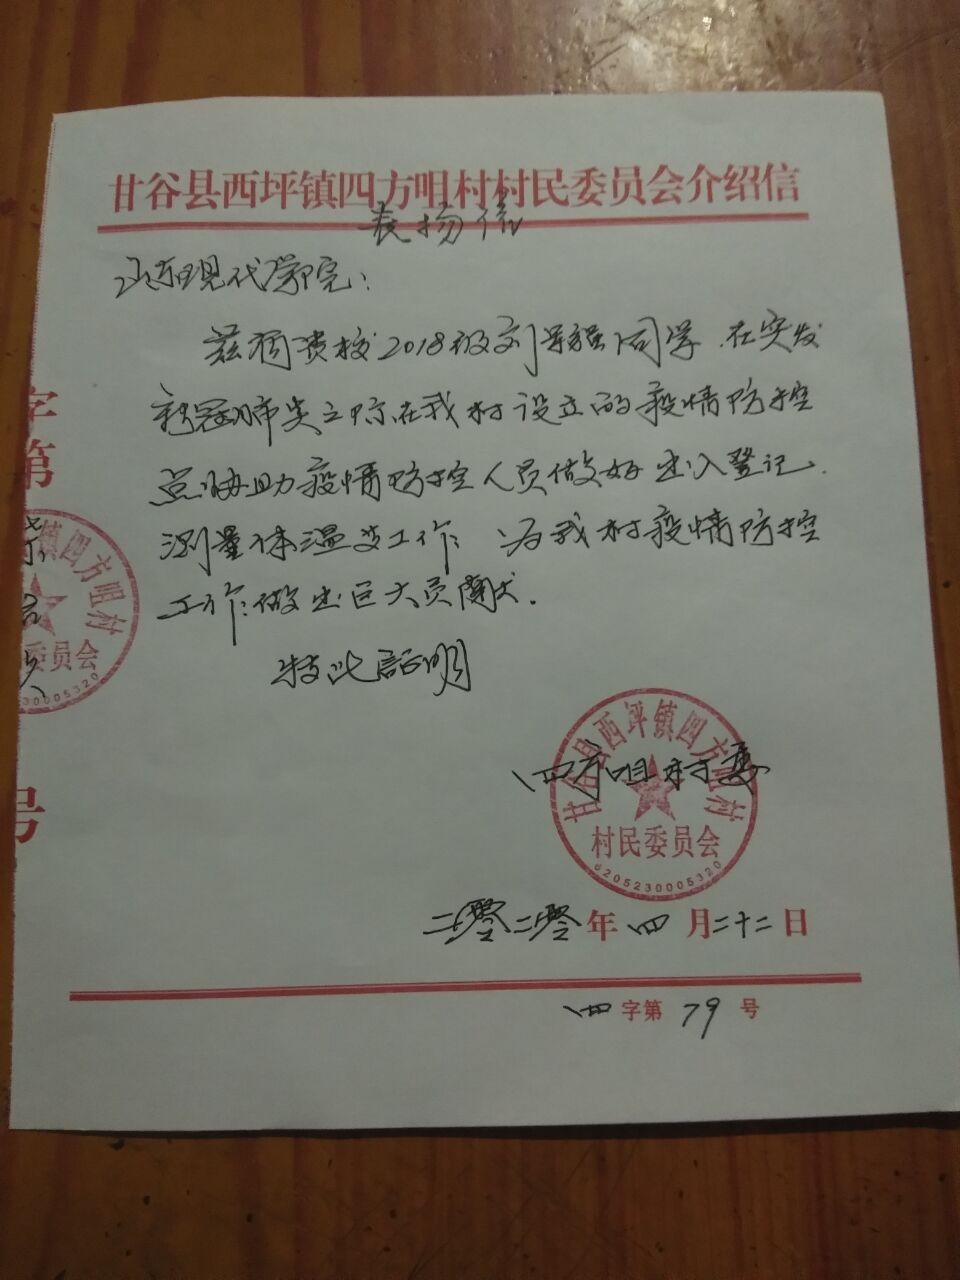 甘谷县西坪镇四方咀村村民委员会介绍信
表扬信
现代学院：
兹有贵校2018级刘强同学.在突发
新冠肺炎之际在我村设立的疫情防控
点协助疫情防控人员做好出入登记.
测量体温等工作 为我村疫情防控
工作做出巨大贡献.
特此证明
四方咀村委
甘谷县西坪镇四方咀村
村民委员会
6205230005320
二零二零年四月二十二日
四字第79号
字第
镇四方咀村
委员会
30005320
号